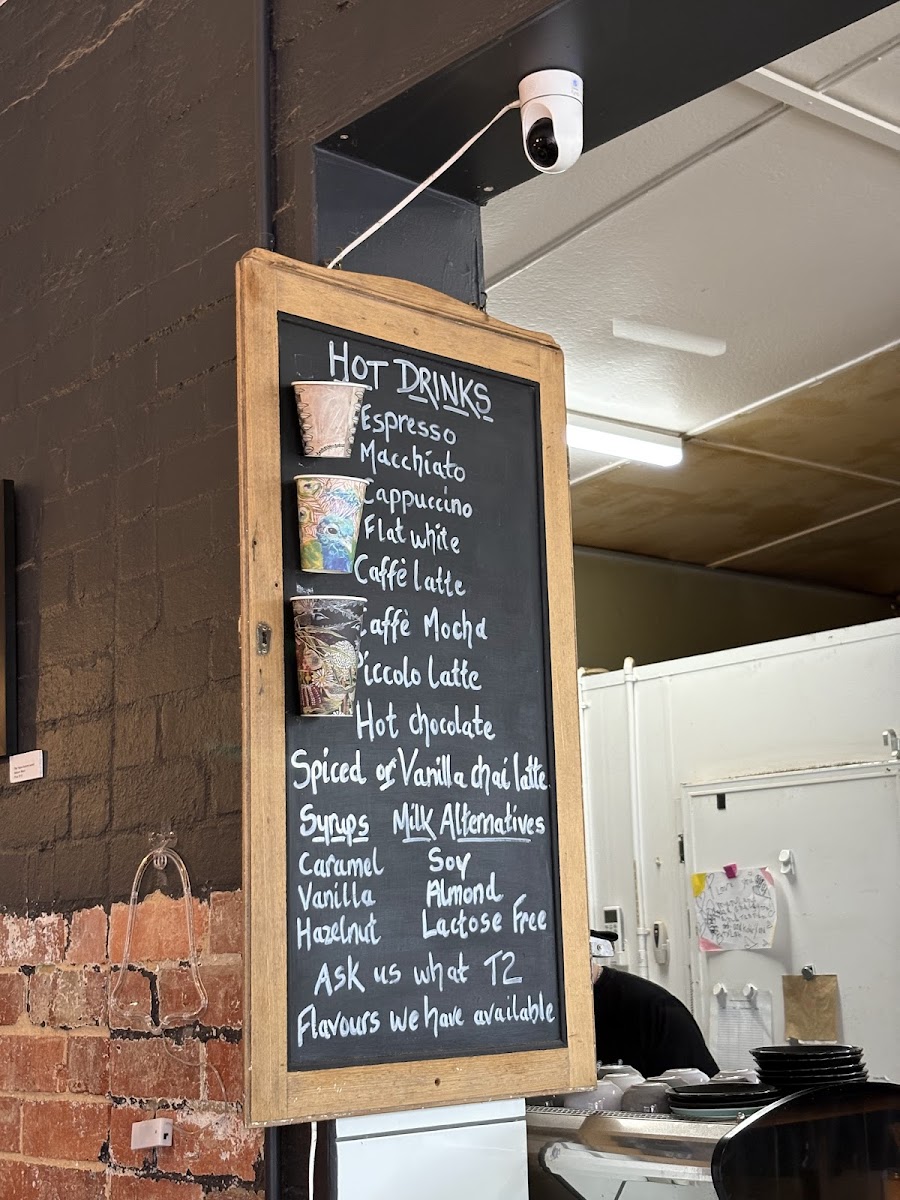 HOT DRINKS
Espresso
Macchiato
Cappuccino
Flat white
Caffè latte
Caffè Mocha
Piccolo Latte
Hot chocolate
Spiced or Vanilla chai latte
Syrups Milk Alternatives
Caramel Soy
Vanilla Almond
Hazelnut Lactose Free
Ask us what T2
Flavours we have available